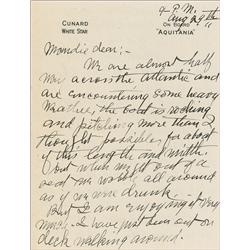 CUNARD
WHITE STAR
4 P.M.
Aug 29th
ON BOARD
"AQUITANIA"
Mondie dear;-
We are almost half
way across the Atlantic and
are encountering some heavy
weather, the boat is rocking
and pitching more than I
thought possible for a boat
of this length and width.
last night
we wobble all around
as if we were drunk.
But I am enjoying it very
much. I have just been out on
deck walking around.